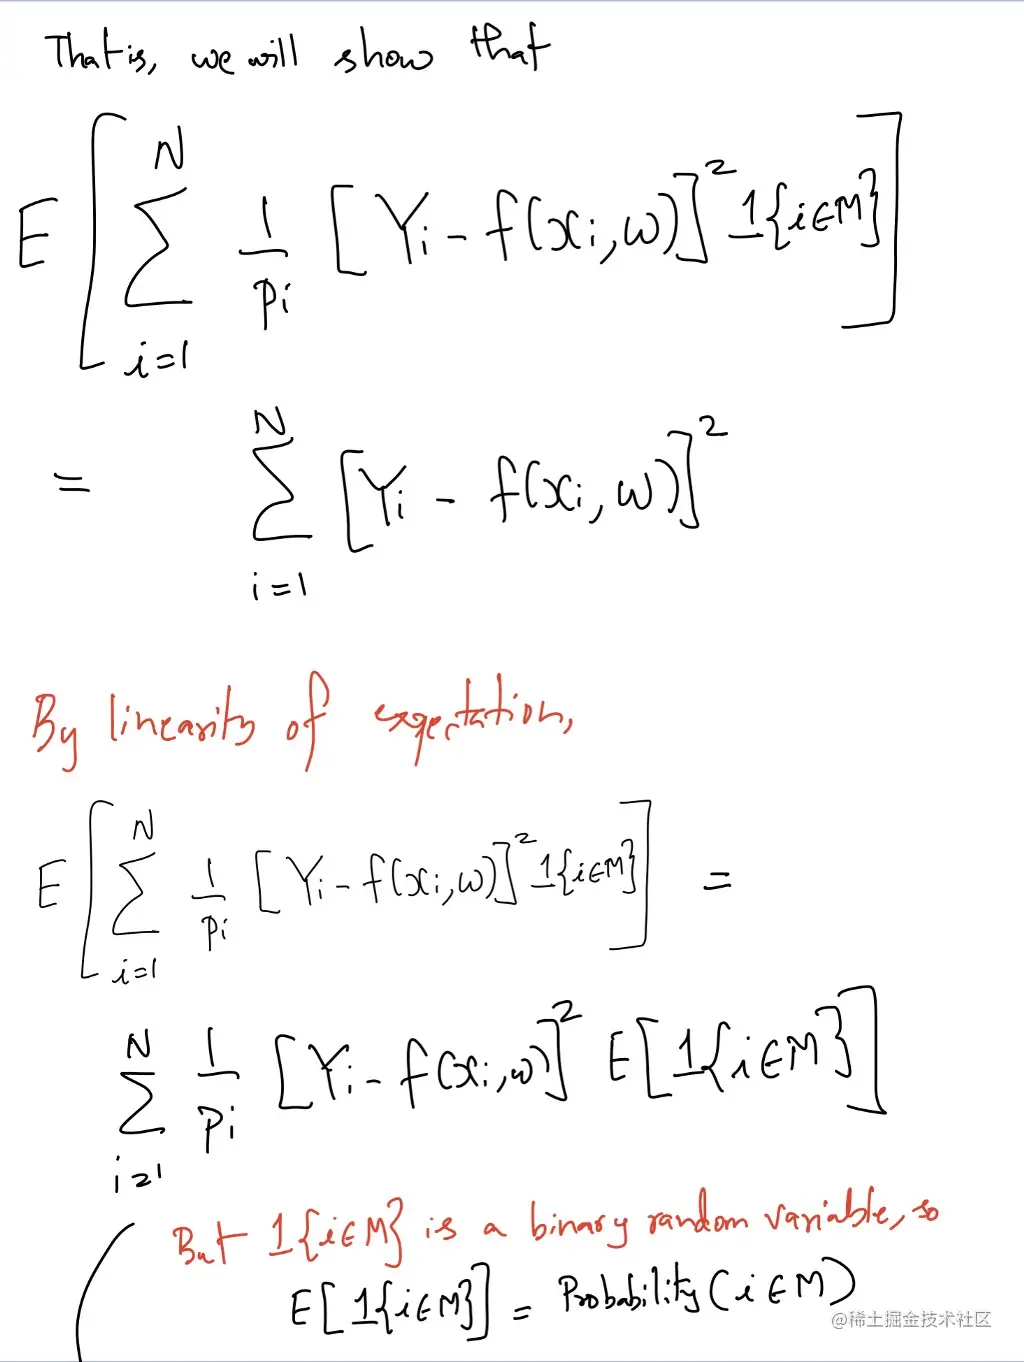 That is, we will show that
E[ \sum_{i=1}^{N} \frac{1}{p_i} [Y_i - f(x_i, w)]^2 1{i∈M} ]
= \sum_{i=1}^{N} [Y_i - f(x_i, w)]^2
By linearity of expectation,
E[ \sum_{i=1}^{N} \frac{1}{p_i} [Y_i - f(x_i, w)]^2 1{i∈M} ] =
\sum_{i=1}^{N} \frac{1}{p_i} [Y_i - f(x_i, w)]^2 E[1{i∈M}]
But 1{i∈M} is a binary random variable, so
E[1{i∈M}] = Probability(i∈M)
@稀土掘金技术社区